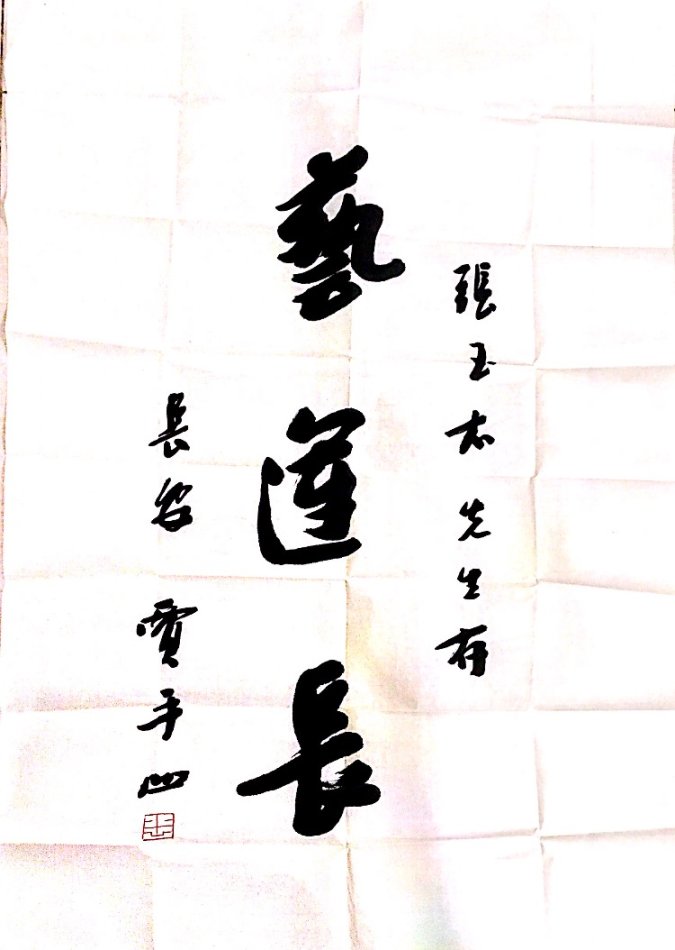 張玉志先生存
藝運長
長安 賈平凹